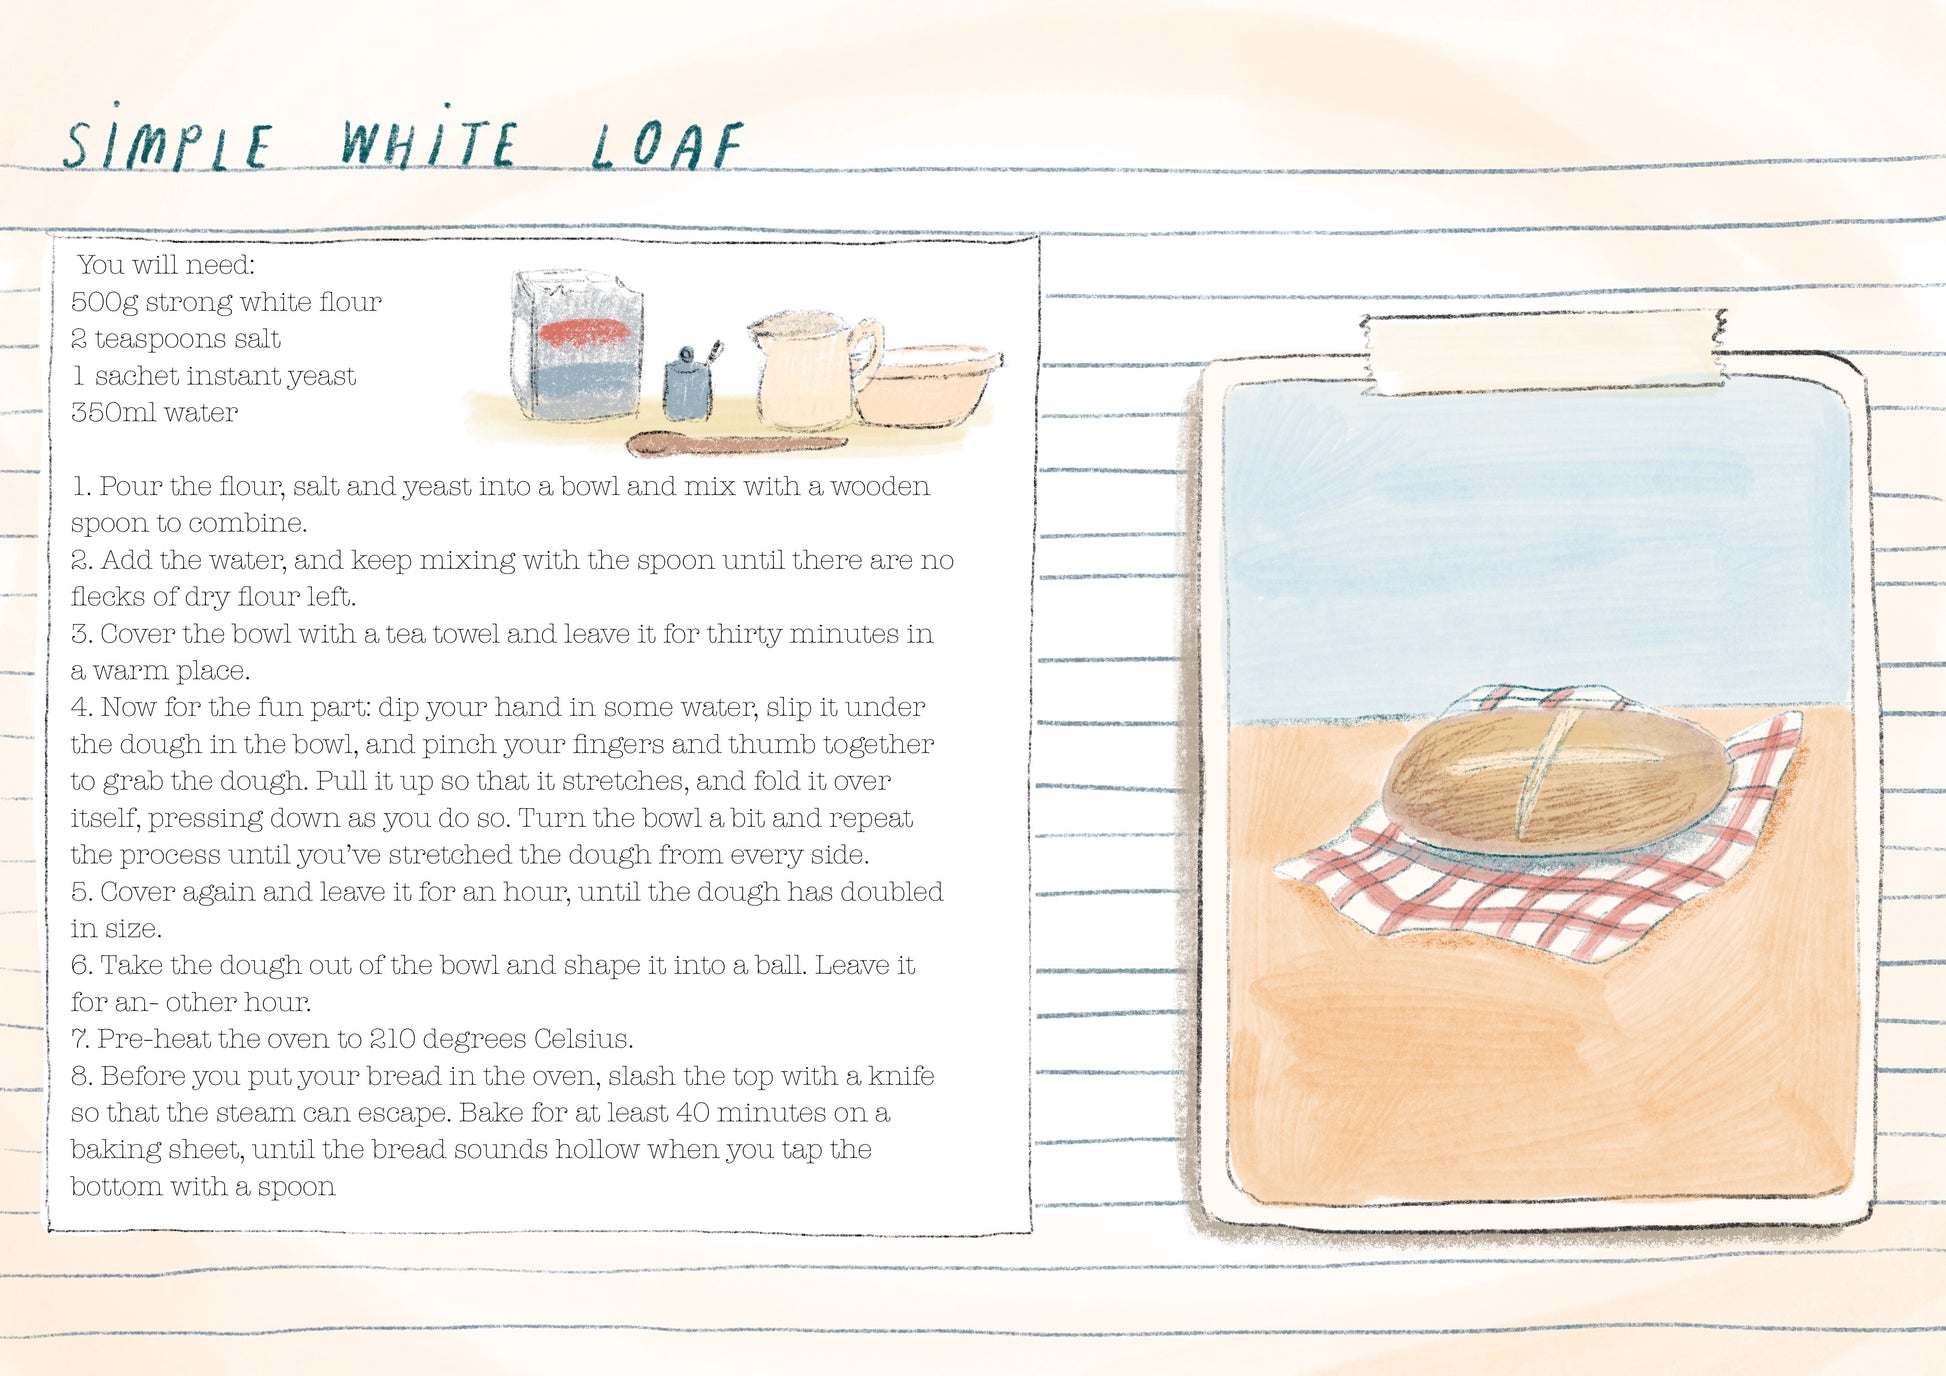 SiMPLE WHiTE LOAF
You will need:
500g strong white flour
2 teaspoons salt
1 sachet instant yeast
350ml water
1. Pour the flour, salt and yeast into a bowl and mix with a wooden
spoon to combine.
2. Add the water, and keep mixing with the spoon until there are no
flecks of dry flour left.
3. Cover the bowl with a tea towel and leave it for thirty minutes in
a warm place.
4. Now for the fun part: dip your hand in some water, slip it under
the dough in the bowl, and pinch your fingers and thumb together
to grab the dough. Pull it up so that it stretches, and fold it over
itself, pressing down as you do so. Turn the bowl a bit and repeat
the process until you’ve stretched the dough from every side.
5. Cover again and leave it for an hour, until the dough has doubled
in size.
6. Take the dough out of the bowl and shape it into a ball. Leave it
for an- other hour.
7. Pre-heat the oven to 210 degrees Celsius.
8. Before you put your bread in the oven, slash the top with a knife
so that the steam can escape. Bake for at least 40 minutes on a
baking sheet, until the bread sounds hollow when you tap the
bottom with a spoon